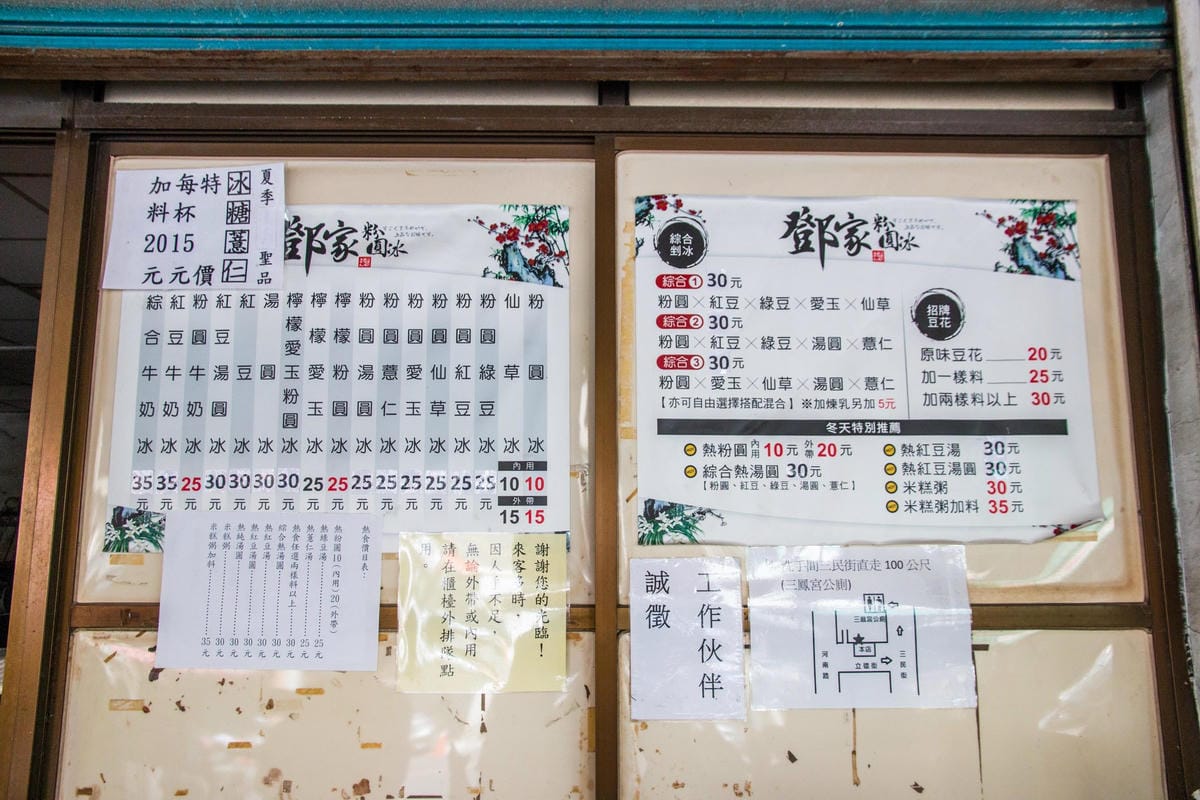 夏季 聖品
冰糖薏仁
特價
每杯15元
加料20元
鄧家粉圓冰
粉圓冰 內用10 外帶15
仙草冰 內用10 外帶15
粉圓綠豆冰 25元
粉圓紅豆冰 25元
粉圓仙草冰 25元
粉圓愛玉冰 25元
粉圓薏仁冰 25元
粉圓湯圓冰 25元
檸檬粉圓冰 25元
檸檬愛玉冰 25元
檸檬愛玉粉圓冰 30元
湯圓冰 30元
紅豆冰 30元
紅豆湯圓冰 30元
粉圓牛奶冰 25元
紅豆牛奶冰 35元
綜合牛奶冰 35元
熱食價目表:
熱粉圓10(內用)20(外帶)
熱綠豆湯 25元
熱薏仁湯 25元
熱食任選兩樣料以上 30元
綜合熱湯圓 30元
熱紅豆湯圓 30元
熱紅豆湯 30元
熱純湯圓 30元
米糕粥 30元
米糕粥加料 35元
謝謝您的光臨!
來客多時,
因人手不足,
無論外帶或內用
請在櫃檯外排隊點
用。
鄧家粉圓冰
綜合剉冰
綜合1 30元
粉圓×紅豆×綠豆×愛玉×仙草
綜合2 30元
粉圓×紅豆×綠豆×湯圓×薏仁
綜合3 30元
粉圓×愛玉×仙草×湯圓×薏仁
【亦可自由選擇搭配混合】※加煉乳另加5元
招牌豆花
原味豆花 20元
加一樣料 25元
加兩樣料以上 30元
冬天特別推薦
熱粉圓 內用10元 外帶20元
綜合熱湯圓 30元
【粉圓、紅豆、綠豆、湯圓、薏仁】
熱紅豆湯 30元
熱紅豆湯圓 30元
米糕粥 30元
米糕粥加料 35元
誠徵
工作伙伴
洗手間三民街直走100公尺
(三鳳宮公廁)
三鳳宮公廁
本店
立德街
河南路
三民街